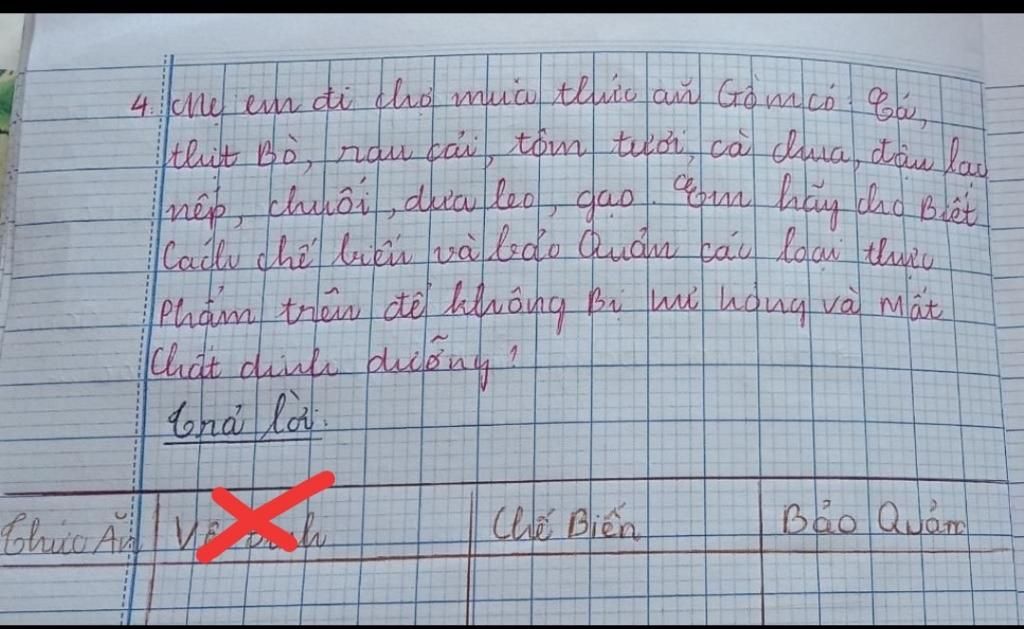 4. Mẹ em đi chợ mua thức ăn Gồm có Cá,
thịt Bò, rau cải, tôm tươi, cà chua, đậu lac
nếp, chuối, dưa leo, gạo. Em hãy cho Biết
Cách chế biến và bảo Quản các loại thực
Phẩm trên để không Bị hư hỏng và Mất
Chất dinh dưỡng?
Trả lời:
Thức Ăn Chế Biến Bảo Quản